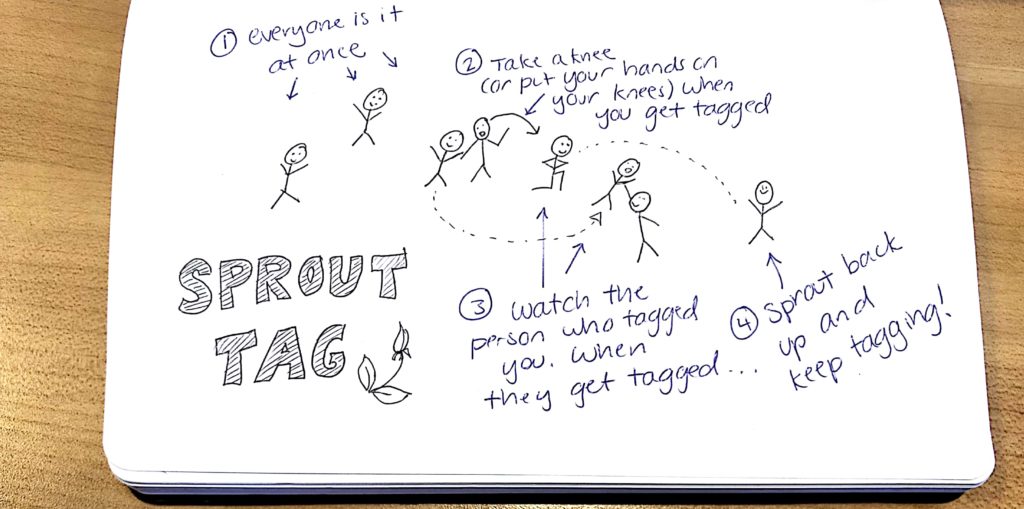 ① everyone is it
at once
② Take a knee
(or put your hands on
your knees) when
you get tagged
SPROUT
TAG
③ watch the
person who tagged
you. When
they get tagged...
④ sprout back
up and
keep tagging!